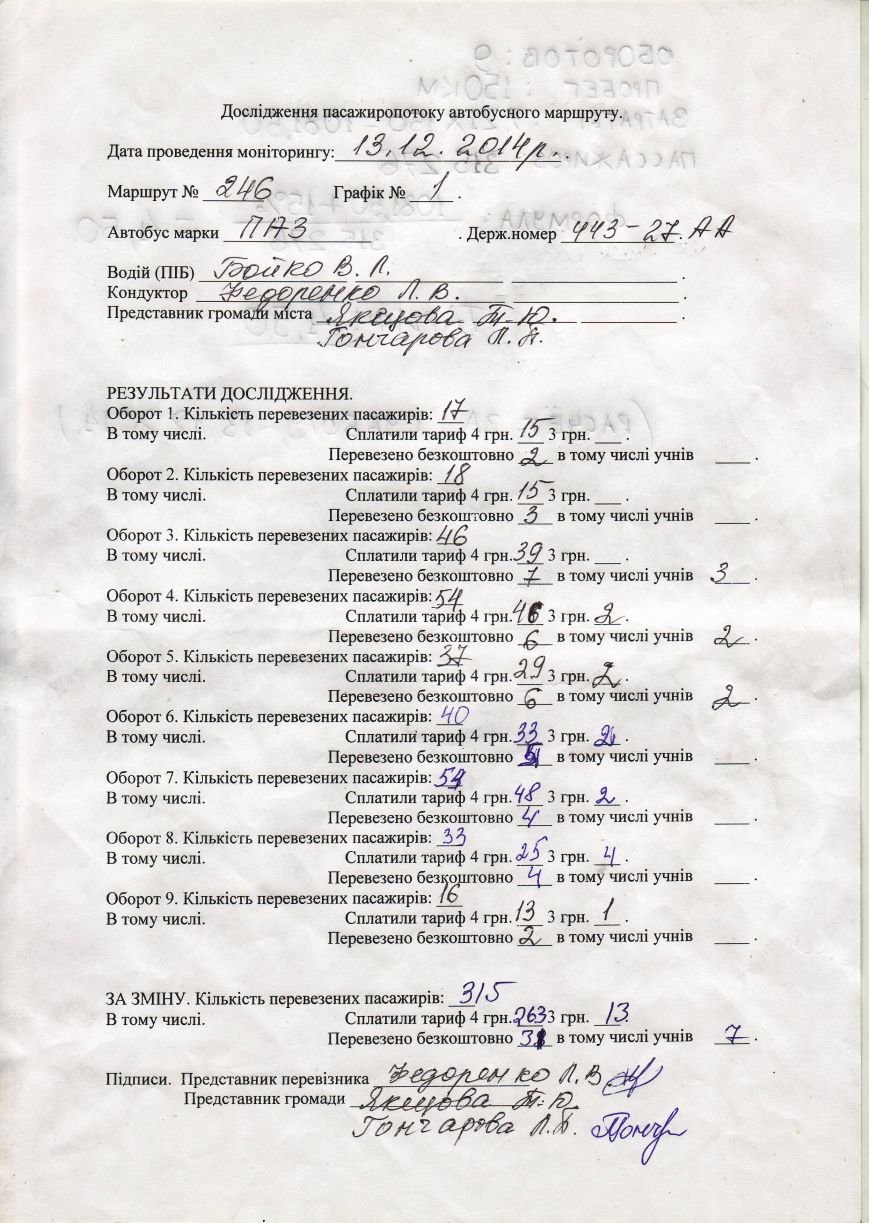 Дослідження пасажиропотоку автобусного маршруту.
Дата проведення моніторингу: 13.12.2014р.
Маршрут № 246 Графік № 1 .
Автобус марки ПАЗ . Держ.номер 443-27 АА
Водій (ПІБ) Бойко В. Л. .
Кондуктор Федоренко Л. В. .
Представник громади міста Якщова Т. Ю. .
Гончарова Л. П.
РЕЗУЛЬТАТИ ДОСЛІДЖЕННЯ.
Оборот 1. Кількість перевезених пасажирів: 17
В тому числі. Сплатили тариф 4 грн. 15 3 грн. ___ .
Перевезено безкоштовно 2 в тому числі учнів ____ .
Оборот 2. Кількість перевезених пасажирів: 18
В тому числі. Сплатили тариф 4 грн. 15 3 грн. ___ .
Перевезено безкоштовно 3 в тому числі учнів ____ .
Оборот 3. Кількість перевезених пасажирів: 46
В тому числі. Сплатили тариф 4 грн. 39 3 грн. ___ .
Перевезено безкоштовно 7 в тому числі учнів 3 .
Оборот 4. Кількість перевезених пасажирів: 54
В тому числі. Сплатили тариф 4 грн. 46 3 грн. 2 .
Перевезено безкоштовно 6 в тому числі учнів 2 .
Оборот 5. Кількість перевезених пасажирів: 37
В тому числі. Сплатили тариф 4 грн. 29 3 грн. 2 .
Перевезено безкоштовно 6 в тому числі учнів 2 .
Оборот 6. Кількість перевезених пасажирів: 40
В тому числі. Сплатили тариф 4 грн. 33 3 грн. 2 .
Перевезено безкоштовно в тому числі учнів ____ .
Оборот 7. Кількість перевезених пасажирів: 54
В тому числі. Сплатили тариф 4 грн. 48 3 грн. 2 .
Перевезено безкоштовно 4 в тому числі учнів ____ .
Оборот 8. Кількість перевезених пасажирів: 33
В тому числі. Сплатили тариф 4 грн. 25 3 грн. 4 .
Перевезено безкоштовно 4 в тому числі учнів ____ .
Оборот 9. Кількість перевезених пасажирів: 16
В тому числі. Сплатили тариф 4 грн. 13 3 грн. 1 .
Перевезено безкоштовно 2 в тому числі учнів ____ .
ЗА ЗМІНУ. Кількість перевезених пасажирів: 315
В тому числі. Сплатили тариф 4 грн. 263 3 грн. 13
Перевезено безкоштовно в тому числі учнів 7 .
Підписи. Представник перевізника Федоренко Л. В
Представник громади Якщова Т. Ю
Гончарова Л. П.